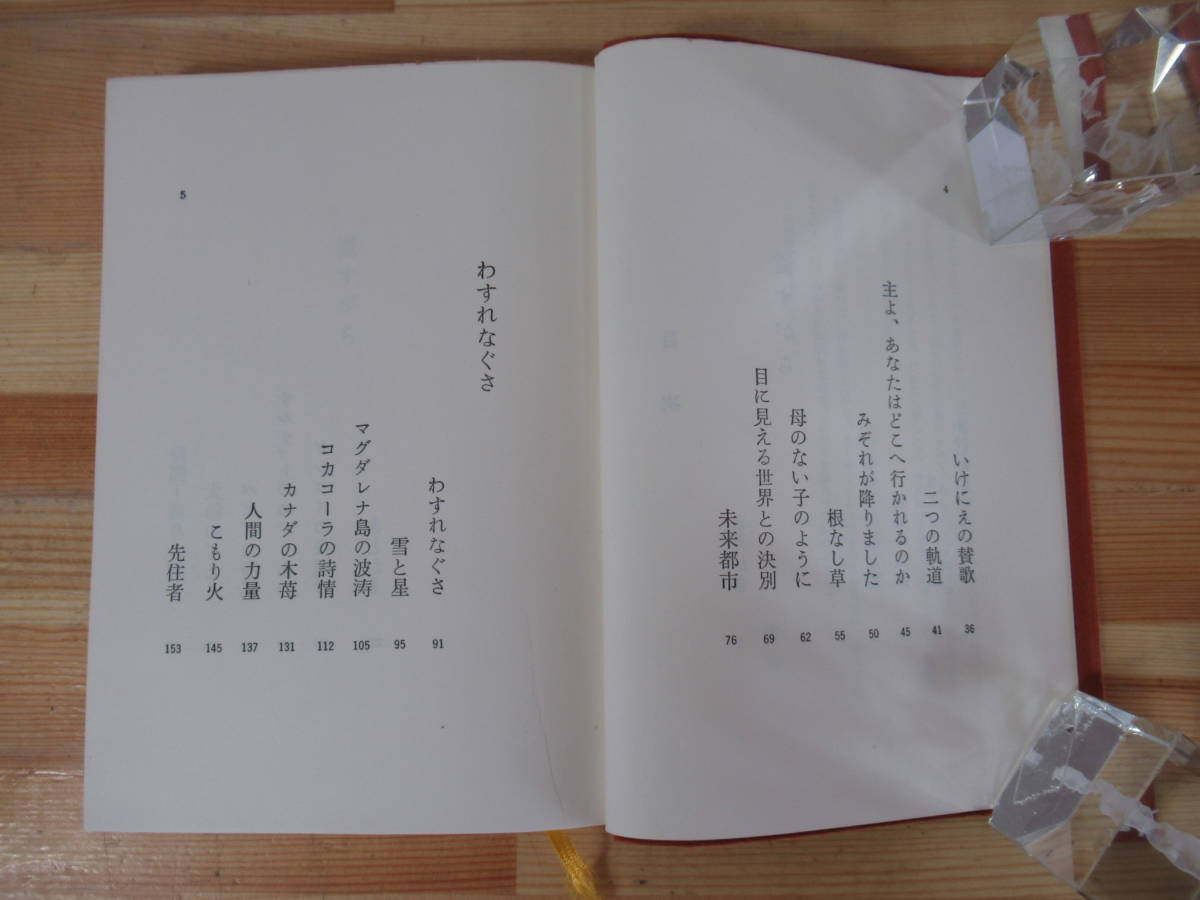 4
いけにえの賛歌 36
二つの軌道 41
主よ、あなたはどこへ行かれるのか 45
みぞれが降りました 50
根なし草 55
母のない子のように 62
目に見える世界との決別 69
未来都市 76
わすれなぐさ
わすれなぐさ 91
雪と星 95
マグダレナ島の波涛 105
コカコーラの詩情 112
カナダの木苺 131
人間の力量 137
こもり火 145
先住者 153
5